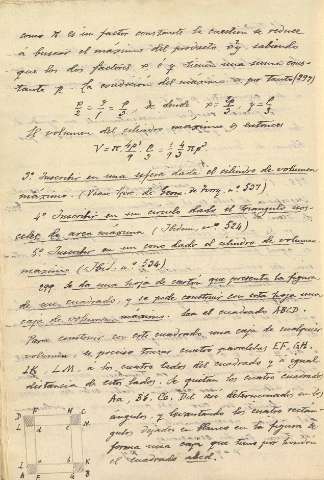 como π es un factor constante la cuestión se reduce
á buscar el maximo del producto x²y, sabiendo
que los dos factores x é y tienen una suma cons-
tante p. La condición del maximo es por tanto (297)
x/2 = y/1 = p/3 de donde x = 2p/3, y = p/3
El volumen del cilindro maximo es entonces
V = π.
3º Inscribir en una esfera dada el cilindro de volumen
maximo. (Vease Ejer. de Geom. nº 531)
4º Inscribir en un circulo dado el triangulo isos-
celes de area maxima (Ibidem, nº 524)
5º Inscribir en un cono dado el cilindro de volumen
maximo (Ibid. nº 534)
299 Se da una hoja de cartón que presenta la figura
de un cuadrado, y se pide construir con esta hoja una
caja de volumen maximo. Sea el cuadrado ABCD.
Para construir con este cuadrado una caja de cualquier
volumen, es preciso trazar cuatro paralelas EF, GH,
IK, LM, a los cuatro lados del cuadrado y á igual
distancia de estos lados. Se quitan los cuatro cuadrados
Aa, Bb, Cc, Dd así determinados en los
angulos, y levantando los cuatro rectan-
gulos dejados en blanco en la figura se
forma una caja que tiene por fondo
el cuadrado abcd.